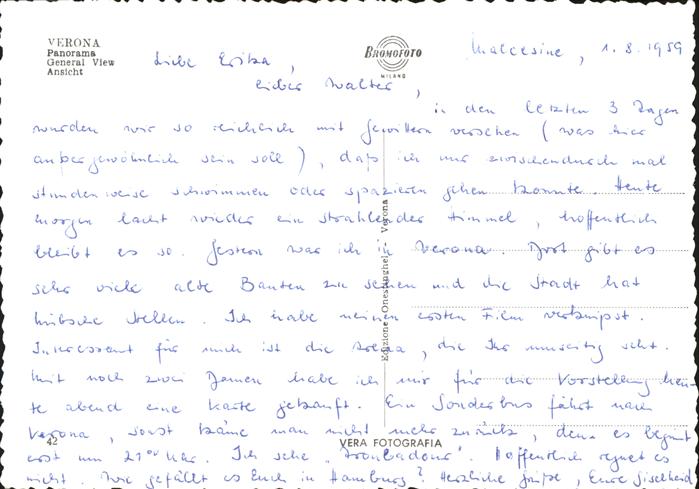 VERONA
Panorama
General View
Ansicht
BROMOFOTO
MILANO
Malcesine, 1.8.1959
Liebe Erika,
lieber Walter,
in den letzten 3 Tagen
wurden wir so reichlich mit Gewittern versehen (was hier
außergewöhnlich sein soll), daß ich nur zwischendurch mal
stundenweise schwimmen oder spazieren gehen konnte. Heute
morgen lacht wieder ein strahlender Himmel, hoffentlich
bleibt es so. Gestern war ich in Verona. Dort gibt es
sehr viele alte Bauten zu sehen und die Stadt hat
hübsche Stellen. Ich habe meinen ersten Film verknipst.
Interessant für mich ist die Arena, die Ihr umseitig seht.
Mit noch zwei Damen habe ich mir für die Vorstellung heu-
te abend eine Karte gekauft. Ein Sonderbus fährt nach
Verona, sonst käme man nicht mehr zurück, denn es beginnt
erst um 21°° Uhr. Ich sehe "Troubadour". Hoffentlich regnet es
nicht. Wie gefällt es Euch in Hamburg? Herzliche Grüße, Eure Giselheid
Edizione Onestinghel - Verona
42
VERA FOTOGRAFIA